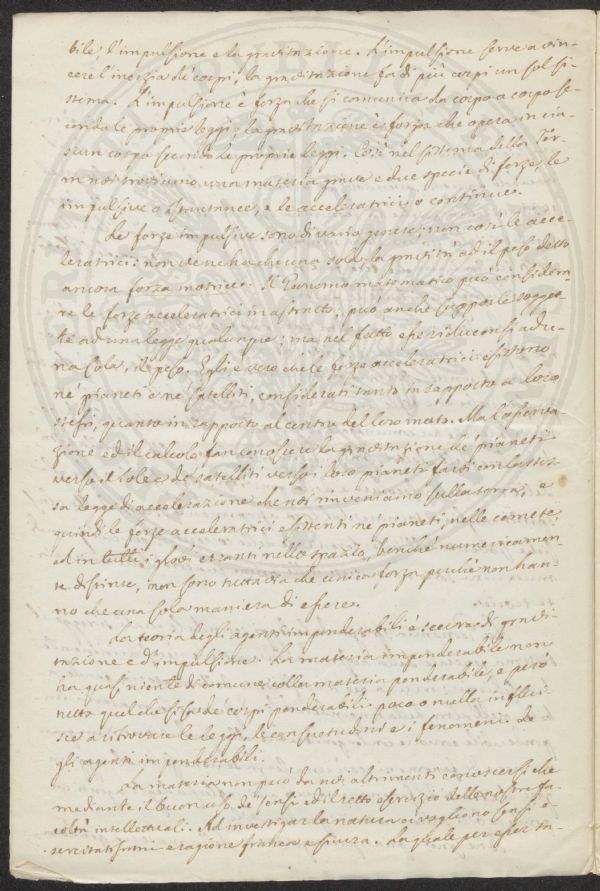 bile l'impulsione e la gravitazione. L'impulsione serve a vin-
cere l'inerzia de' corpi; la gravitazione fa di più corpi un sol si-
stema. L'impulsione è forza che si comunica da corpo a corpo se-
condo le proprie leggi; la gravitazione è forza che opera in cia-
scun corpo secondo le proprie leggi. Così nel sistema della Ter-
ra noi troviamo una materia grave e due specie di forze, le
impulsive o istantanee, e le acceleratrici o continue.
Le forze impulsive sono di vario genere; non così le acce-
leratrici: non ve ne ha che una sola, la gravità od il peso detto
ancora forza motrice. Il Geonomo matematico può considera-
re le forze acceleratrici in astratto; può anche supporle sogget-
te ad una legge qualunque; ma nel fatto esse riduconsi ad u-
na sola, il peso. Egli è vero che le forze acceleratrici esistono
ne' pianeti e ne' satelliti, considerati tanto in rapporto a loro
stessi, quanto in rapporto al centro del loro moto. Ma l'osserva-
zione ed il calcolo fan conoscere la gravitazione de' pianeti
verso il Sole e de' satelliti verso i loro pianeti farsi con la stes-
sa legge di accelerazione che noi rinveniamo sulla terra; e
quindi le forze acceleratrici esistenti ne' pianeti, nelle comete
ed in tutti i globi erranti nello spazio, benché numericamen-
te distinte, non sono tuttavia che unica forza perché non han-
no che una sola maniera di essere.
La teoria degli agenti imponderabili è scevra di gravi-
tazione e d'impulsione. La materia imponderabile non
ha quasi niente di comune colla materia ponderabile, e però
tutto quel che si sa de' corpi ponderabili poco o nulla influi-
sce a ritrovare le leggi, le consuetudini e i fenomeni de-
gli agenti imponderabili.
La materia non può da noi altrimenti conoscersi che
mediante il buon uso de' sensi ed il retto esercizio delle nostre fa-
coltà intellettuali. Ad investigar la natura ci vogliono sensi e-
sercitatissimi e ragione franca e sicura. La quale per esser ta-